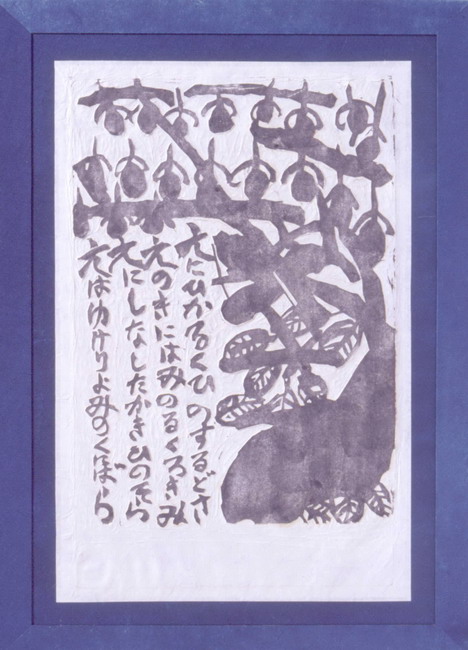 えにひかるくひのするどさ
えのきにはみのるくろきみ
えにしなしたかきひのそら
えはゆけりよみのくぼら